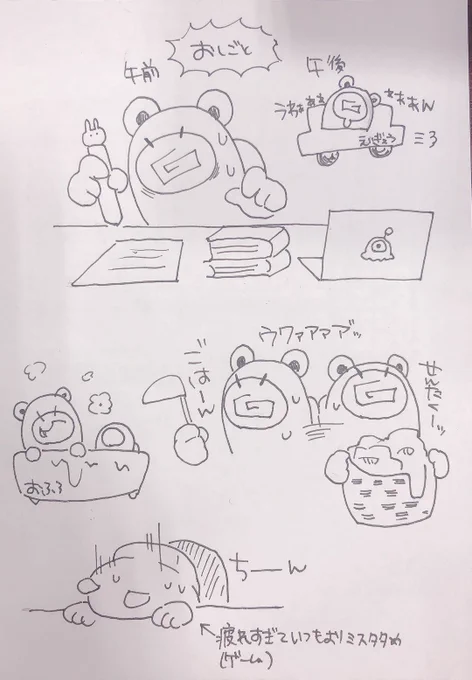 おしごと
午前
午後
うわぁぁぁ
ぁぁぁん
ミ3
ウワァアァァッ
ごはーん
せんたくーッ
おふろ
ちーん
疲れすぎていつもよりミスタタめ
(ゲーム)